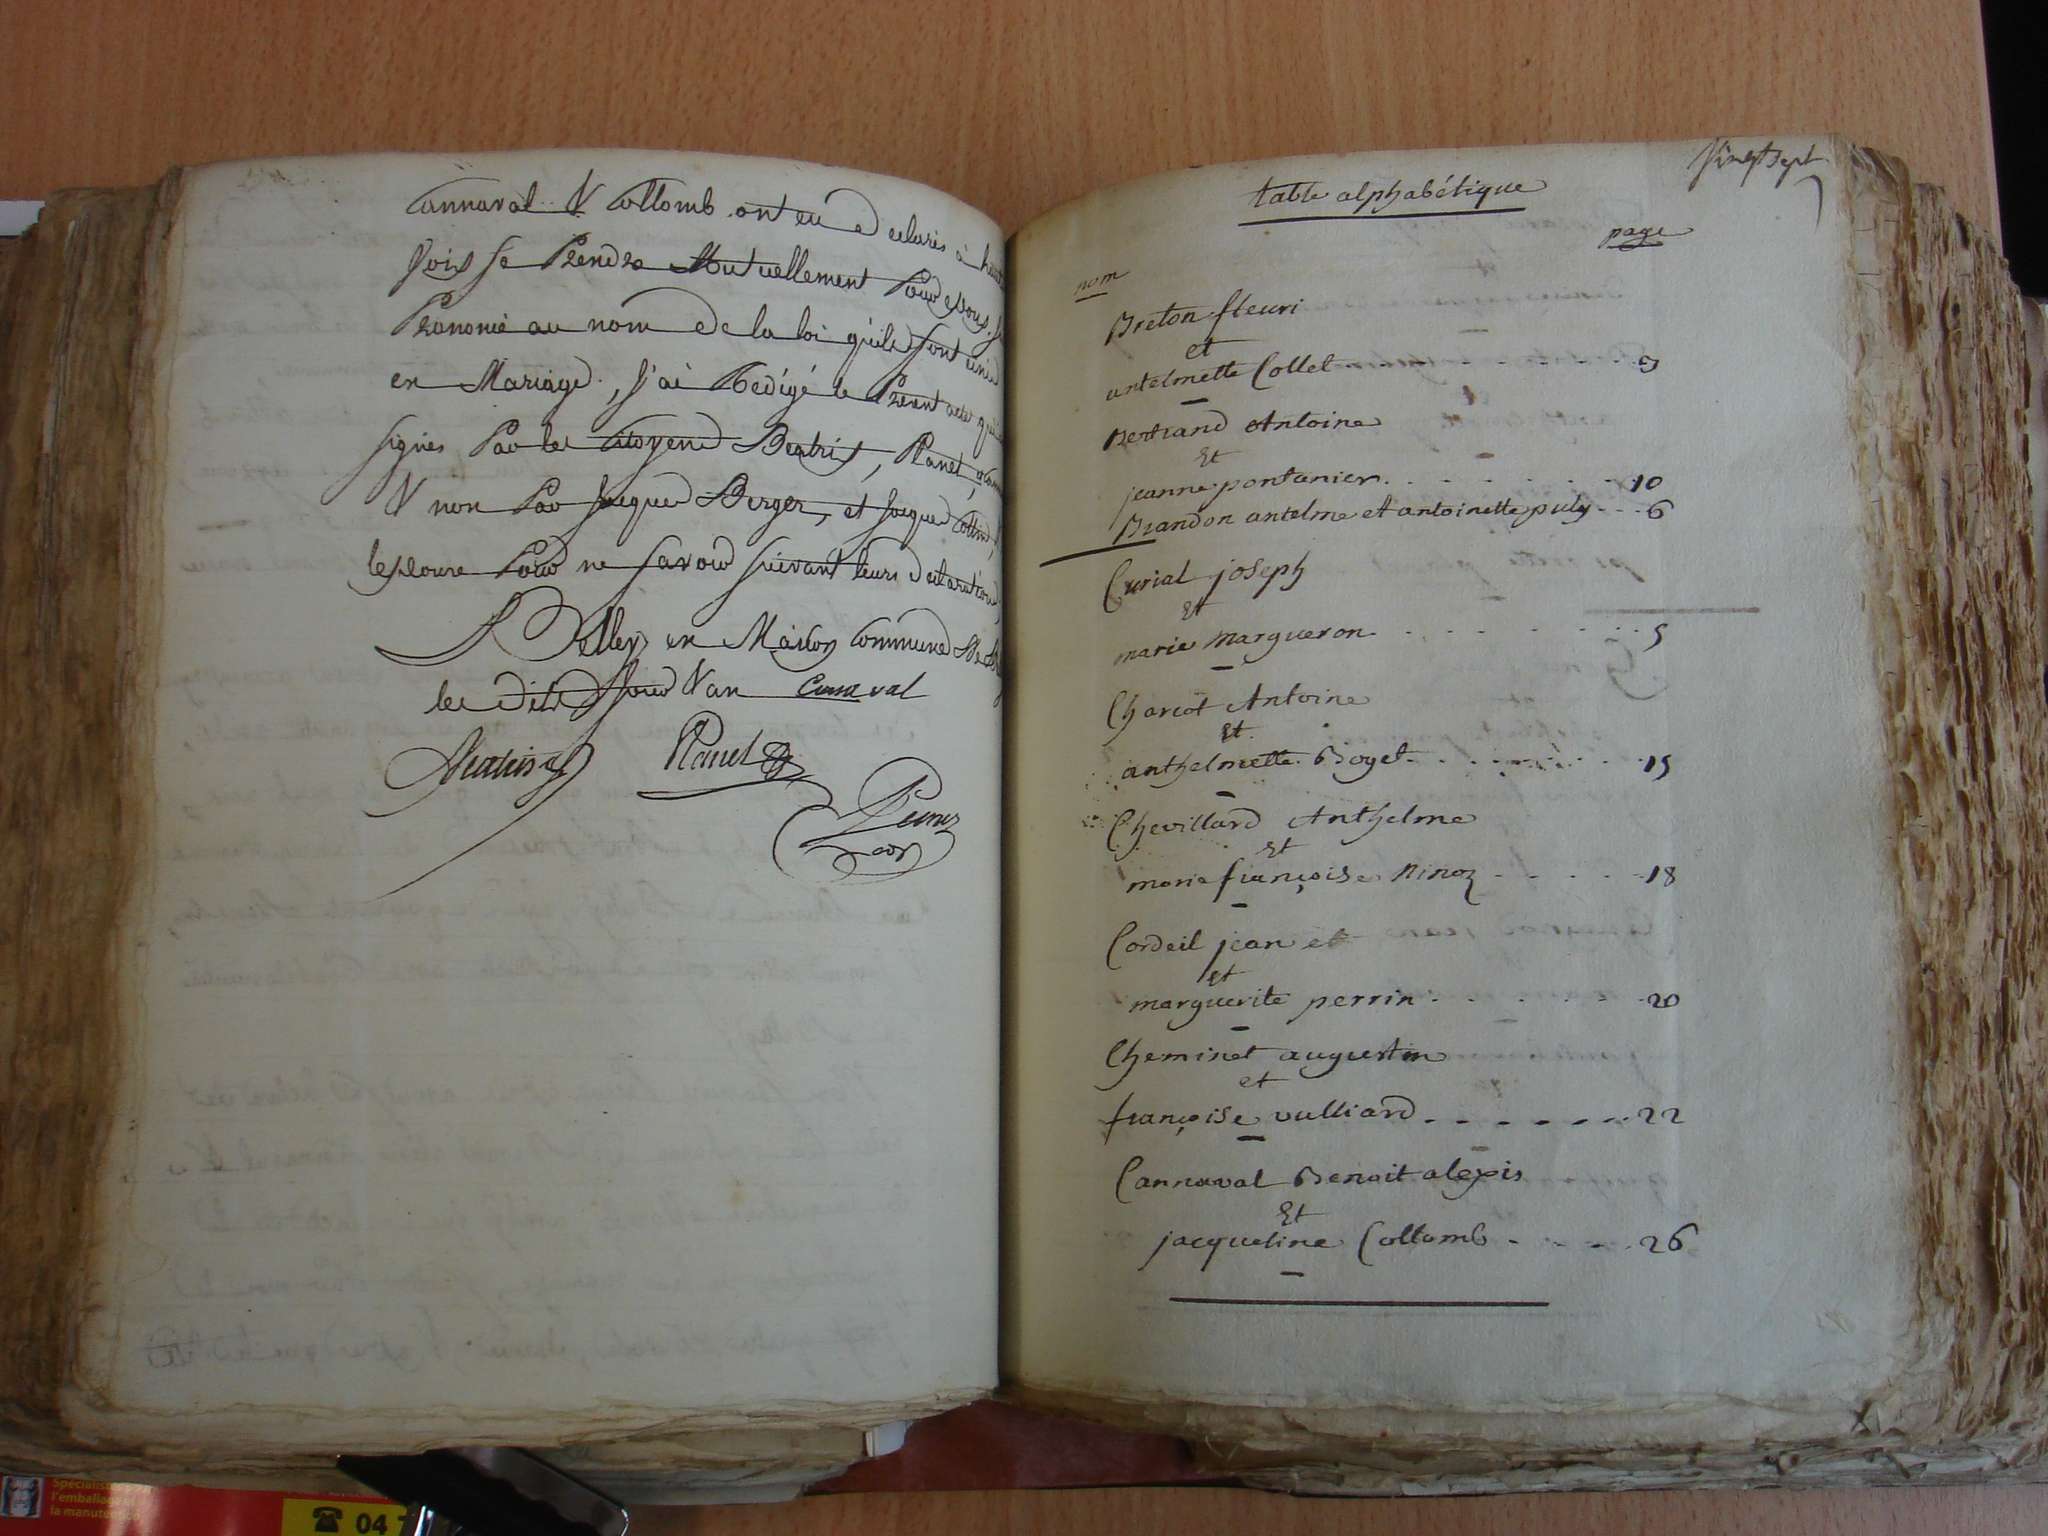 Cannaval & Collomb ont eu declarés à haute
Voix se Prendre Mutuellement Pour Epoux. J'
Prononcé au nom de la loi qu'ils sont unis
en Mariage, J'ai Redigé le Present acte que
signés Par les Citoyens Beatrix, Planet,
& non Par Jacques Berger, et Jacques Collomb,
les Pour ne savoir suivant leurs declarations,
A Belley en Maison Commune
les dits Jour & an Canaval
Beatrix
Planet
Vingt sept
table alphabétique
page
nom
Breton fleuri
et
antelmette Collet 9
Bertrand Antoine
Et
jeanne pontanier 10
Brandon antelme et antoinette puly 6
Curial joseph
Et
marie margueron 5
Chariot Antoine
Et
anthelmette Boget 15
Chevillard Anthelme
Et
marie françoise Ninoz 18
Cordeil jean et
et
marguerite perrin 20
Cheminet augustin
et
françoise vulliard 22
Cannaval Benoit alexis
Et
jacqueline Collomb 26
Spécialiste
l'emballage et
la manutention
☎ 04